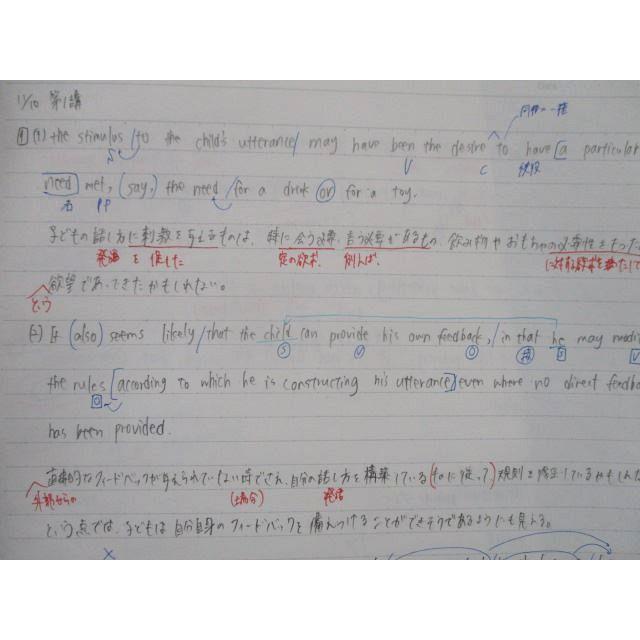 11/10 第1講
同格 一種
1 (1) the stimulus to the child's utterance may have been the desire to have a particular
S V C 使役
need met, (say,) the need for a drink or for a toy.
名 PP
子どもの話し方に刺激を与えるものは、特に会う必要、言う必要があるもの、飲み物やおもちゃの必要性をもった
発話 を促した 定の欲求、例えば、 に対する欲求を満たして
欲望であってきたかもしれない。
という
(2) It (also) seems likely that the child can provide his own feedback, in that he may modi
S V O 接 S V
the rules [according to which he is constructing his utterance] even where no direct feedba
O
has been provided.
直接的なフィードバックが与えられていない時でさえ、自分の話し方を構築している(ものに従って)規則を
外部からの (場合) 発話
という点では、子どもは自分自身のフィードバックを備えつけることができそうであるようにも見える。